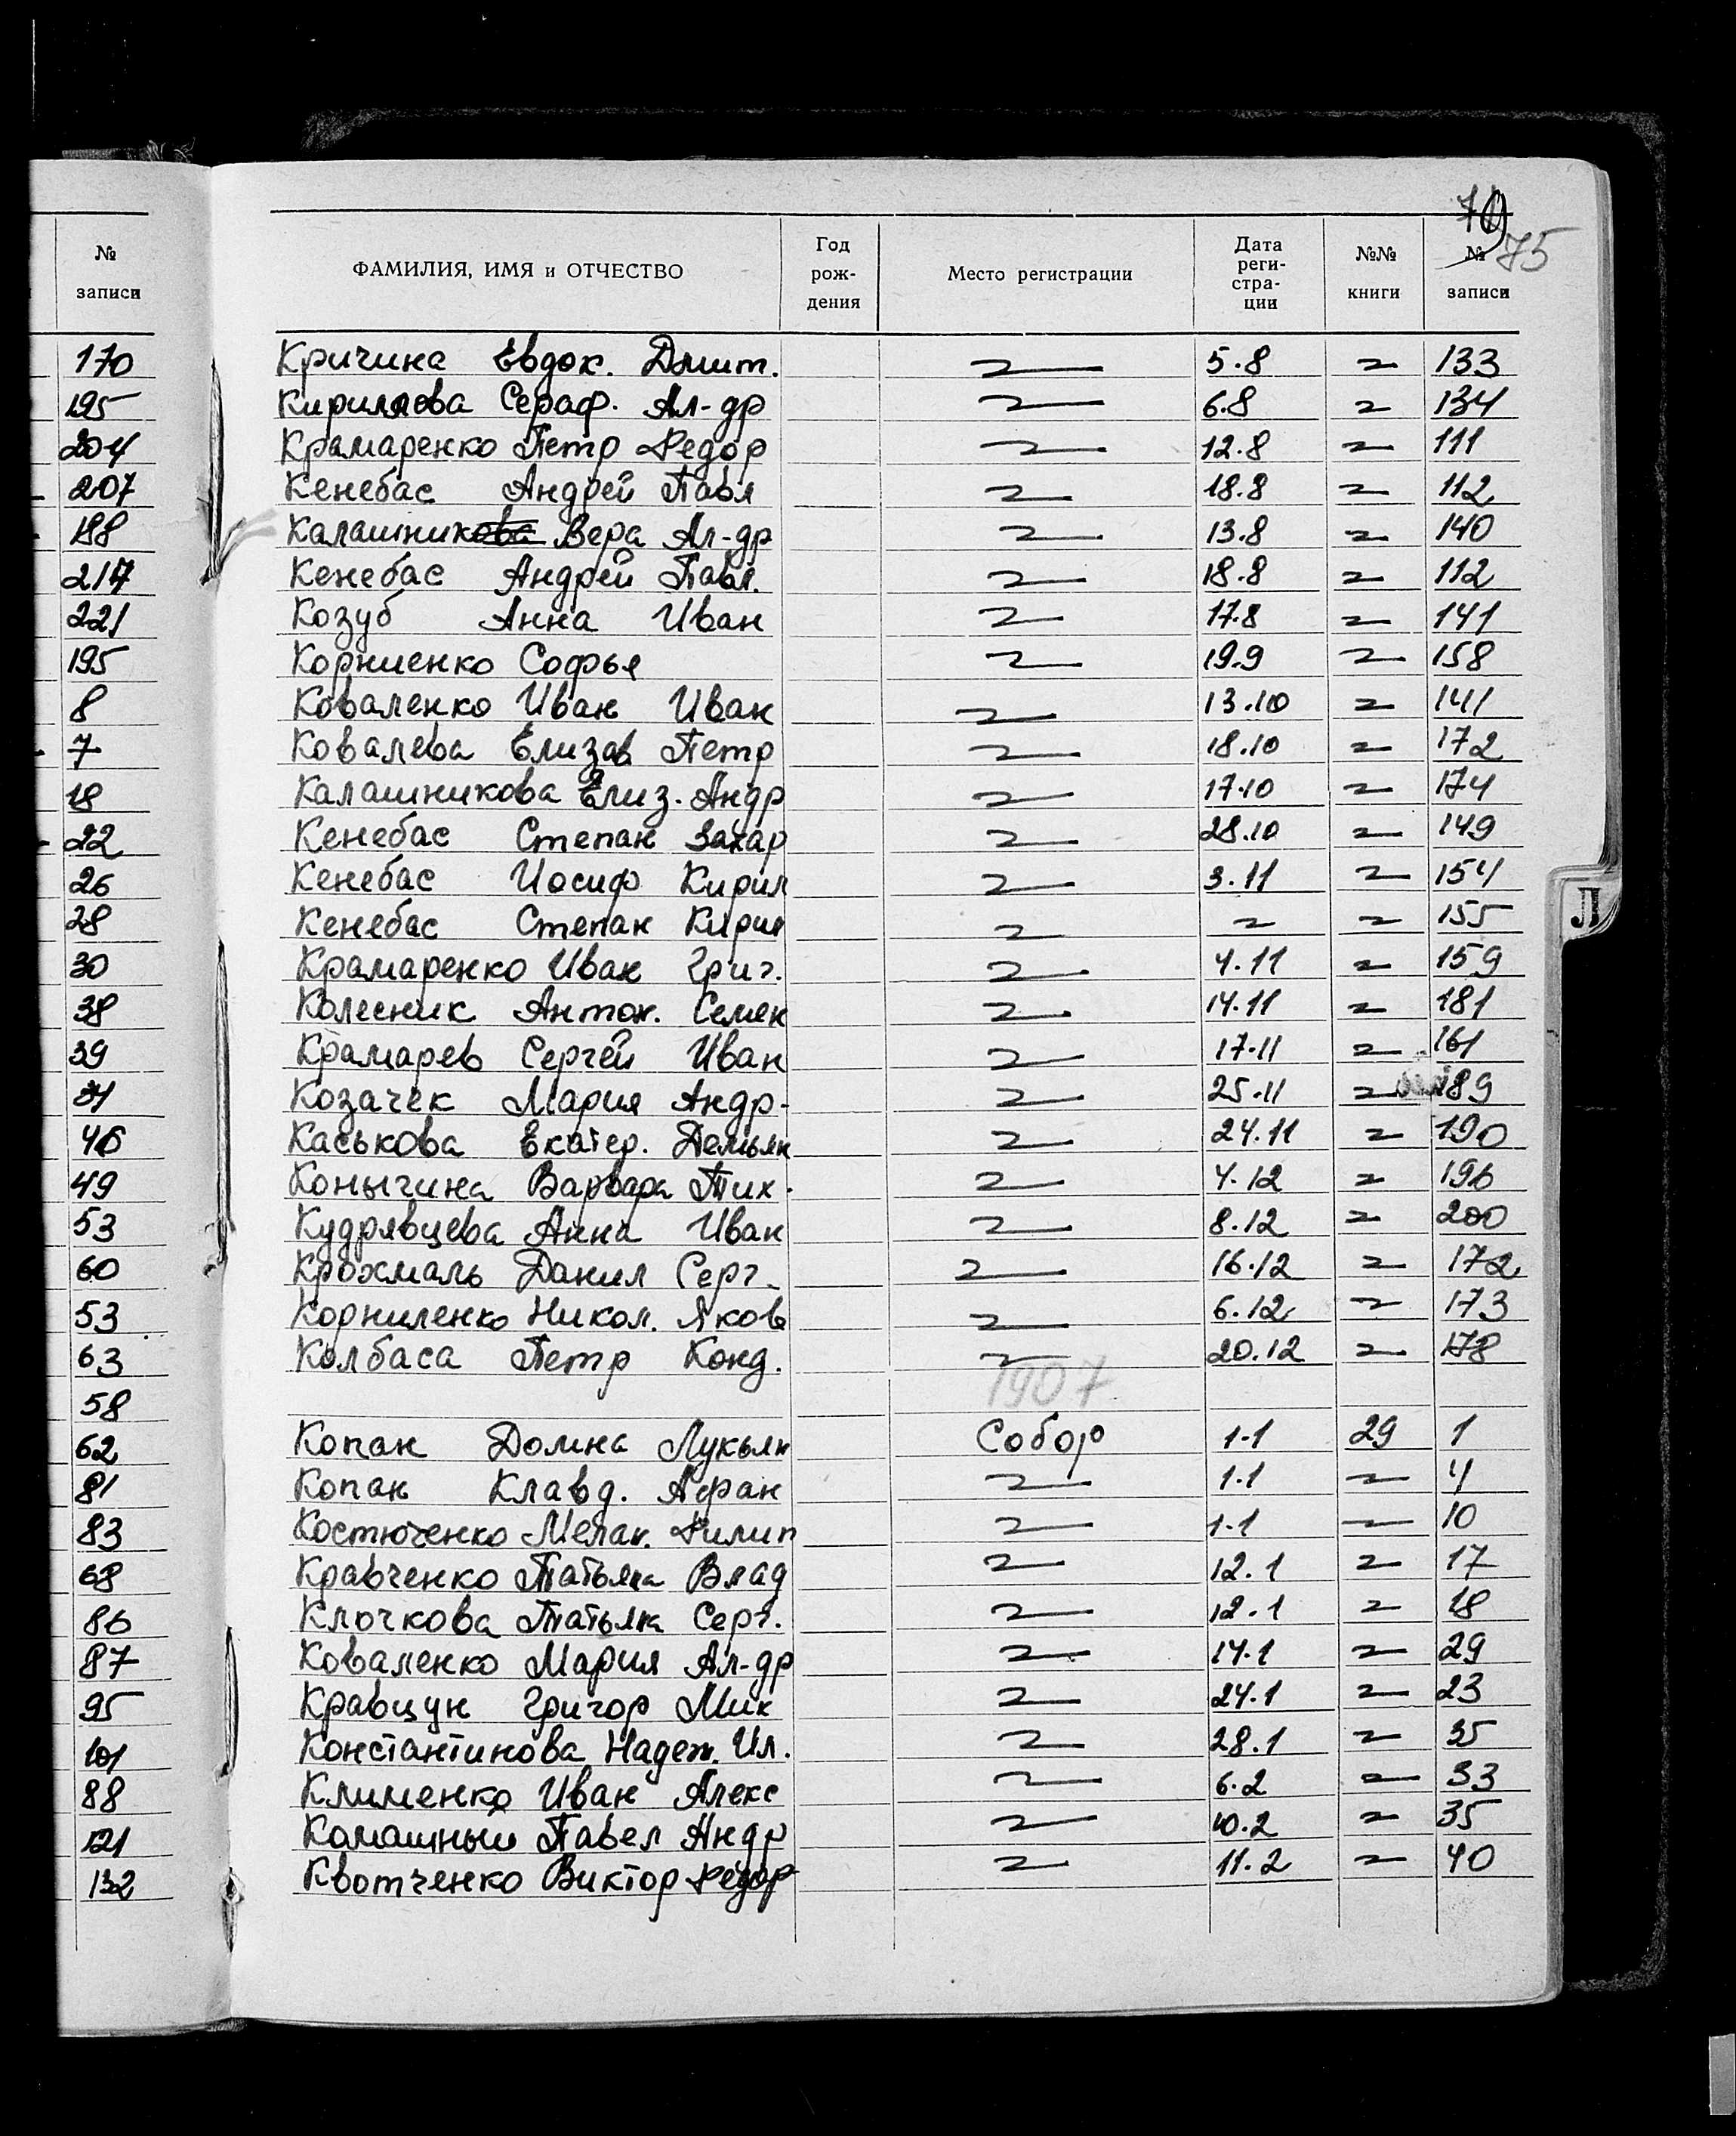 № записи
170
195
204
207
188
217
221
195
8
7
18
22
26
28
30
38
39
46
49
53
60
53
63
58
62
81
83
68
86
87
95
101
88
121
132
75
ФАМИЛИЯ, ИМЯ и ОТЧЕСТВО Год рож- дения Место регистрации Дата реги- стра- ции №№ книги № записи
Кричина Евдок. Дмит. 〃 5.8 〃 133
Кириллова Сераф. Ал-др 〃 6.8 〃 134
Крамаренко Петр Федор 〃 12.8 〃 111
Кенебас Андрей Павл 〃 18.8 〃 112
Калашникова Вера Ал-др 〃 13.8 〃 140
Кенебас Андрей Павл. 〃 18.8 〃 112
Козуб Анна Иван 〃 17.8 〃 141
Корниенко Софья 〃 19.9 〃 158
Коваленко Иван Иван 〃 13.10 〃 141
Ковалева Елизав Петр 〃 18.10 〃 172
Калашникова Елиз. Андр 〃 17.10 〃 174
Кенебас Степан Захар 〃 28.10 〃 149
Кенебас Иосиф Кирил 〃 3.11 〃 154
Кенебас Степан Кирил 〃 〃 〃 155
Крамаренко Иван Григ. 〃 4.11 〃 159
Колесник Антон. Семен 〃 14.11 〃 181
Крамарев Сергей Иван 〃 17.11 〃 161
Козачек Мария Андр. 〃 25.11 〃 189
Каськова Екатер. Демьян 〃 24.11 〃 190
Конычина Варвара Тих. 〃 4.12 〃 196
Кудрявцева Анна Иван 〃 8.12 〃 200
Крохмаль Данил Серг. 〃 16.12 〃 172
Корниленко Никол. Яков 〃 6.12 〃 173
Колбаса Петр Конд. 〃 20.12 〃 178
1907
Копан Домна Лукьян Собор 1.1 29 1
Копан Клавд. Афан 〃 1.1 〃 4
Костюченко Мелан. Филип 〃 1.1 〃 10
Кравченко Татьяна Влад 〃 12.1 〃 17
Клочкова Татьяна Серг. 〃 12.1 〃 18
Коваленко Мария Ал-др 〃 14.1 〃 29
Кравцун Григор Мик 〃 24.1 〃 23
Константинова Надеж. Ил. 〃 28.1 〃 35
Клименко Иван Алекс 〃 6.2 〃 33
Камашный Павел Андр 〃 10.2 〃 35
Квотченко Виктор Федор 〃 11.2 〃 40
Л